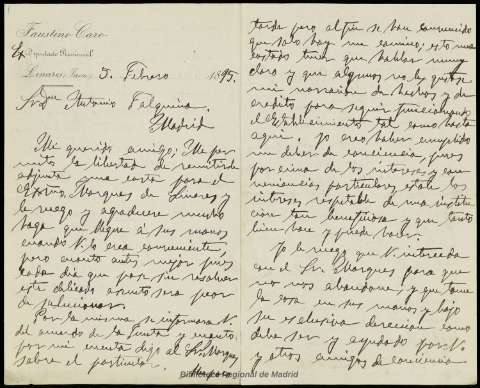 Faustino Caro
Ex Diputado Provincial
Linares (Jaen) 5 Febrero 1895.
Sr. Dn Antonio Falquina
Madrid
Mi querido amigo; Me per
mito la libertad de remitirle
adjunta una carta para el
Excmo. Marques de Linares y
le ruego y agradecere mucho
haga que llegue á sus manos
cuando V. lo crea conveniente,
pero cuanto antes mejor pues
cada dia que pase sin resolver
este delicado asunto será peor
de solucionar.
Por la misma se informará V.
del acuerdo de la Junta y cuanto
por mi cuenta digo al Sr. Marques
sobre el particular.
Mucho
tarde pero al fin se han convencido
que solo hay un camino; esto me ha
costado tener que hablar muy
claro y que algunos no les guste
mi narración de hechos y de
credito para seguir funcionando
el Establecimiento tal como hasta
aqui. Yo creo haber cumplido
un deber de conciencia pues
por encima de los intereses y con
veniencias particulares estan los
intereses respetables de una institu
cion tan beneficiosa y que tanto
bien hace y puede hacer.
Yo le ruego que V. interceda
con el Sr. Marques para que
no nos abandone, y que tome
la cosa en sus manos y bajo
su exclusiva direccion como
debe ser y ayudado por V.
y otros amigos de conciencia
Biblioteca Regional de Madrid